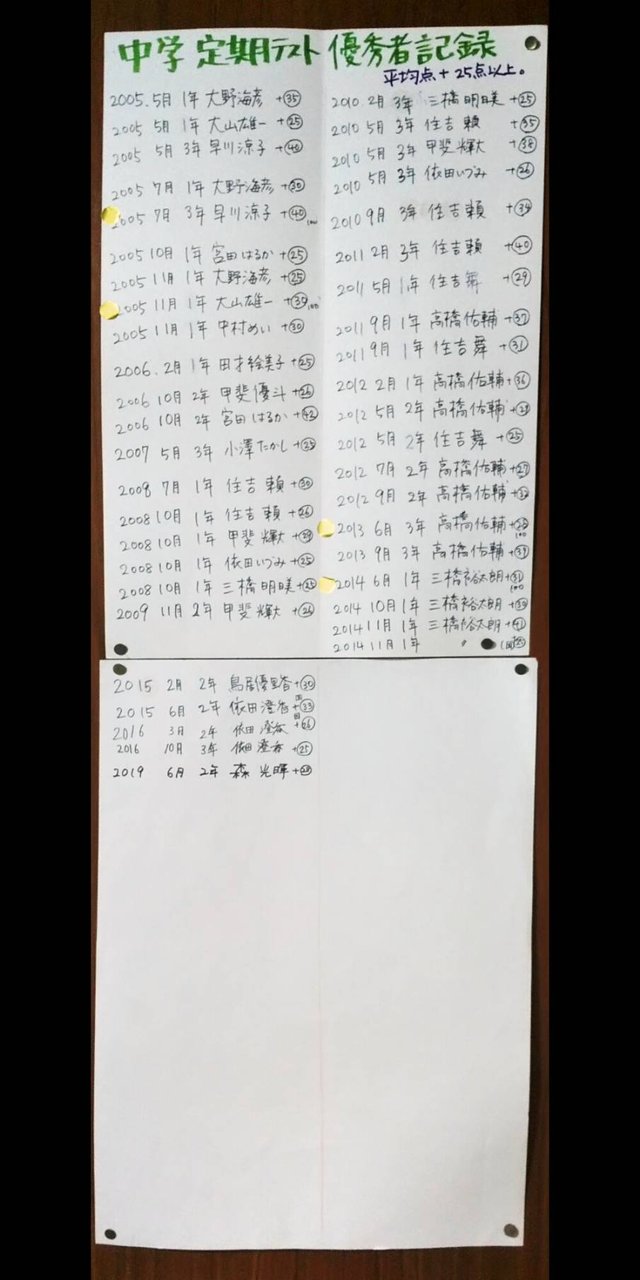 中学 定期テスト 優秀者記録
平均点 + 25点以上。
2005.5月 1年 大野海彦 +㉟
2005 5月 1年 大山雄一 +㉕
2005 5月 3年 早川涼子 +㊵
2005 7月 1年 大野海彦 +㉚
2005 7月 3年 早川涼子 +㊵ 100
2005 10月 1年 宮田はるか +㉕
2005 11月 1年 大野海彦 +㉕
2005 11月 1年 大山雄一 +㊴ 100
2005 11月 1年 中村めい +㉚
2006.2月 1年 田才絵美子 +㉕
2006 10月 2年 甲斐優斗 +㉖
2006 10月 2年 宮田はるか +㊷
2007 5月 3年 小澤たかし +㉟
2008 7月 1年 住吉頼 +㉚
2008 10月 1年 住吉頼 +㉖
2008 10月 1年 甲斐輝大 +㊴
2008 10月 1年 依田いづみ +㉕
2008 10月 1年 三橋明咲 +㉕
2009 11月 2年 甲斐輝大 +㉖
2010 2月 3年 三橋明咲 +㉕
2010 5月 3年 住吉頼 +㉟
2010 5月 3年 甲斐輝大 +㊳
2010 5月 3年 依田いづみ +㉖
2010 9月 3年 住吉頼 +㊴
2011 2月 3年 住吉頼 +㊵
2011 5月 1年 住吉舞 +㉙
2011 9月 1年 高橋佑輔 +㊲
2011 9月 1年 住吉舞 +㉛
2012 2月 1年 高橋佑輔 +㊱
2012 5月 2年 高橋佑輔
2012 5月 2年 住吉舞 +㉕
2012 7月 2年 高橋佑輔 +㉗
2012 9月 2年 高橋佑輔
2013 6月 3年 高橋佑輔 100
2013 9月 3年 高橋佑輔 +㊲
2014 6月 1年 三橋裕太朗 +㉛ 100
2014 10月 1年 三橋裕太朗 +㉚
2014 11月 1年 三橋裕太朗 +㊶
2014 11月 1年 〃
2015 2月 2年 鳥居優里香 +㉚
2015 6月 2年 依田澄香 国 +㉝
2016 3月 2年 依田澄香 国 +㉖
2016 10月 3年 依田澄香 +㉕
2019 6月 2年 森光暉 +㉘